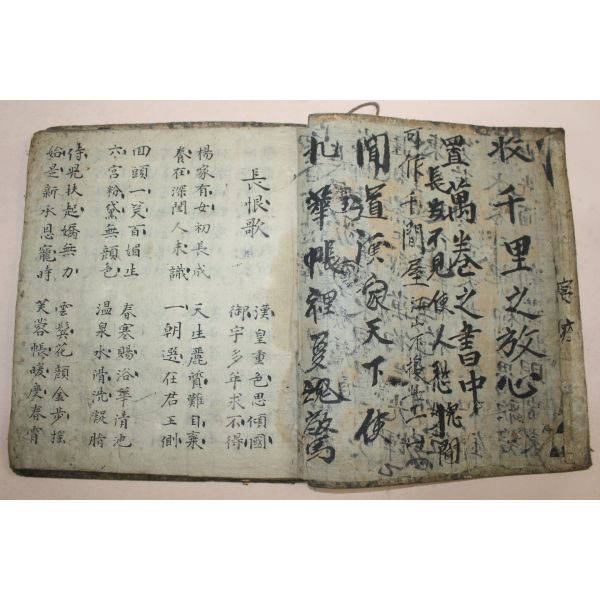 收千里之放心
置萬卷之書中
長安不見使人愁
可作千間屋
聞道漢家天下使
九華帳裡夢魂驚
長恨歌
漢皇重色思傾國
御宇多年求不得
楊家有女初長成
養在深閨人未識
天生麗質難自棄
一朝選在君王側
回頭一笑百媚生
六宮粉黛無顔色
春寒賜浴華清池
溫泉水滑洗凝脂
侍兒扶起嬌無力
始是新承恩寵時
雲鬢花顔金步搖
芙蓉帳暖度春宵